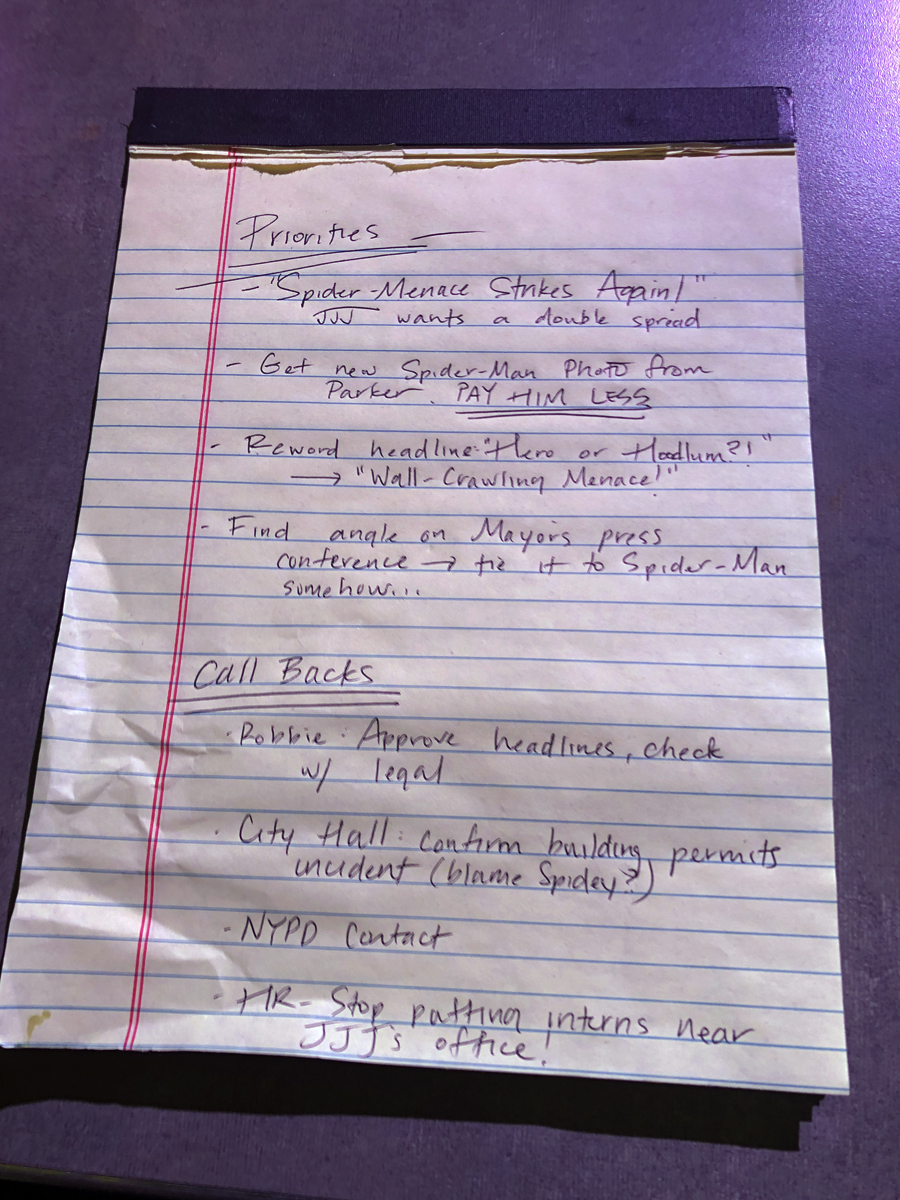 Priorities
- "Spider-Menace Strikes Again!"
JJJ wants a double spread
- Get new Spider-Man Photo from
Parker. PAY HIM LESS
- Reword headline: "Hero or Hoodlum?!"
→ "Wall-Crawling Menace!"
- Find angle on Mayor's press
conference → tie it to Spider-Man
somehow...
Call Backs
· Robbie: Approve headlines, check
w/ legal
· City Hall: confirm building permits
incident (blame Spidey?)
- NYPD Contact
- HR- Stop putting interns near
JJJ's office!